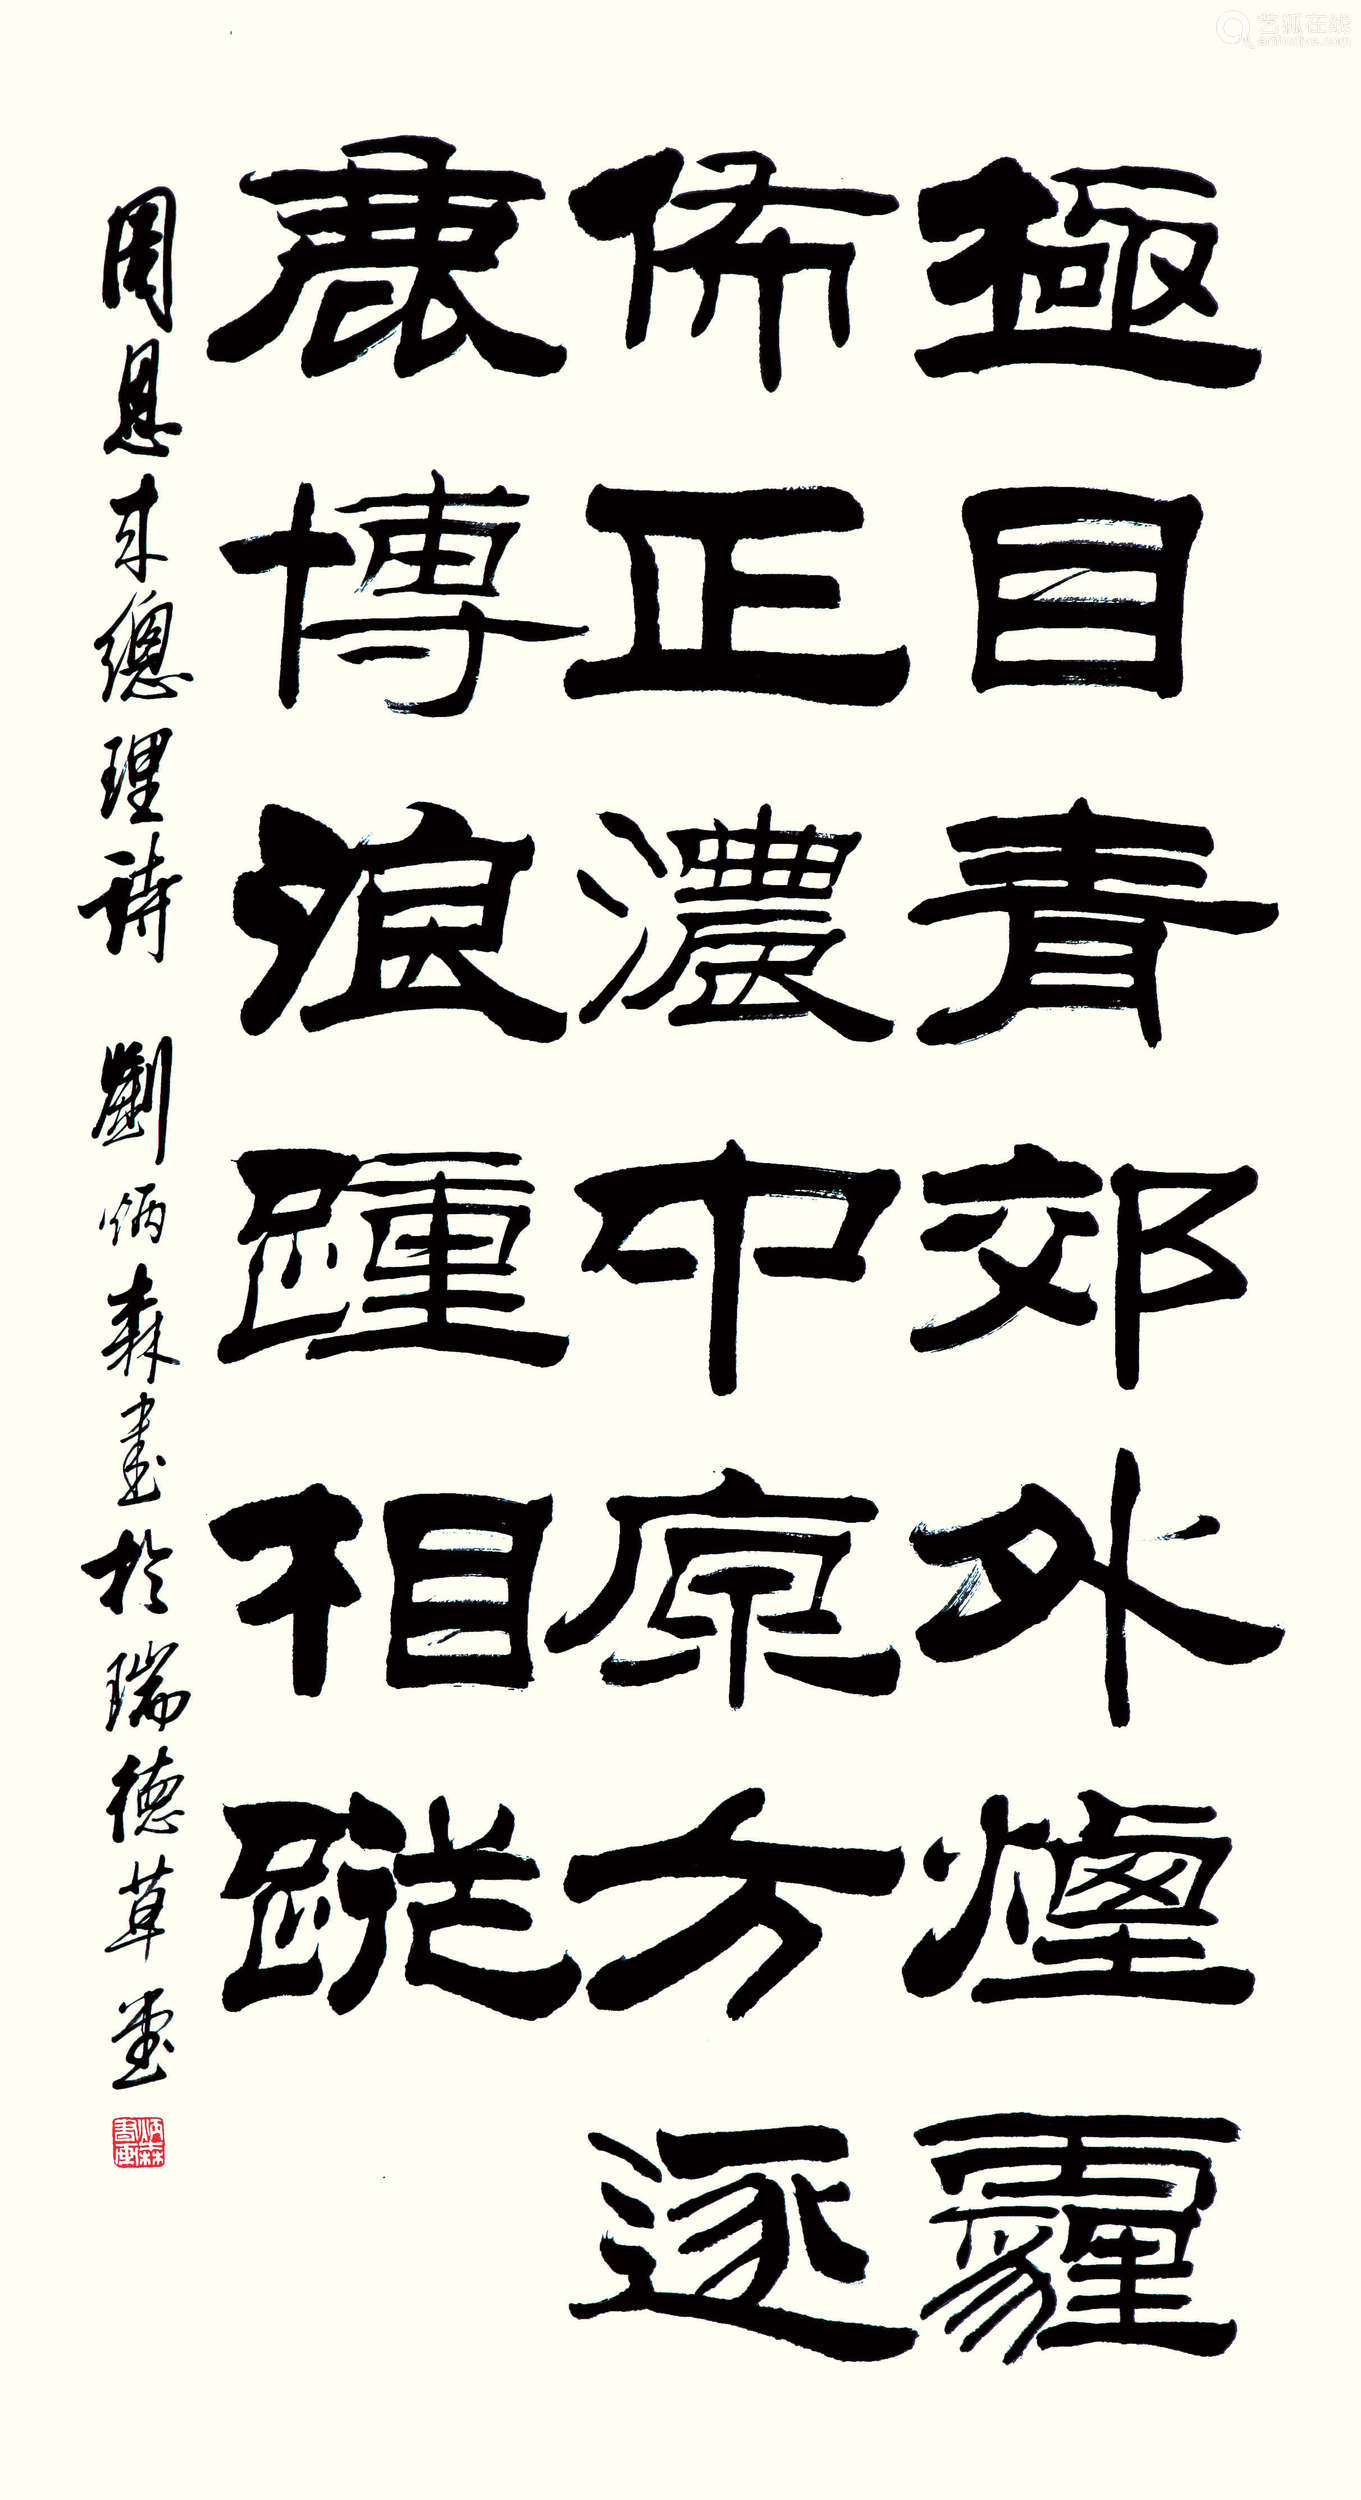 極目青郊外煙霾
佈正濃中原方逐
鹿博浪踵相蹤
周恩来總理詩 劉炳森書於瑞德草堂
艺狐在线
artfoxlive.com